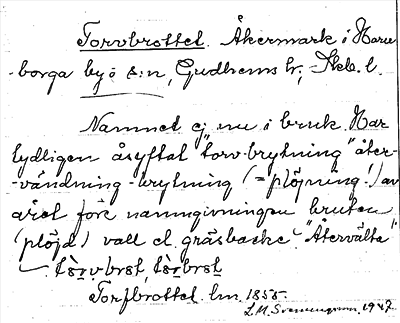 Torvbrottet. Åkermark i Harv-
-borga by o s:n, Gudhems hr, Skb. l.
Namnet ej nu i bruk. Har
tydligen åsyftat "torv-brytning" åter-
-vändning-brytning (=plöjning!) av
året före namngivningen bruten
(plöjd) vall el. gräsbacke. "Återvälta"
Torfbrottet. lm. 1855.
L.M. Svenungsson. 1947.